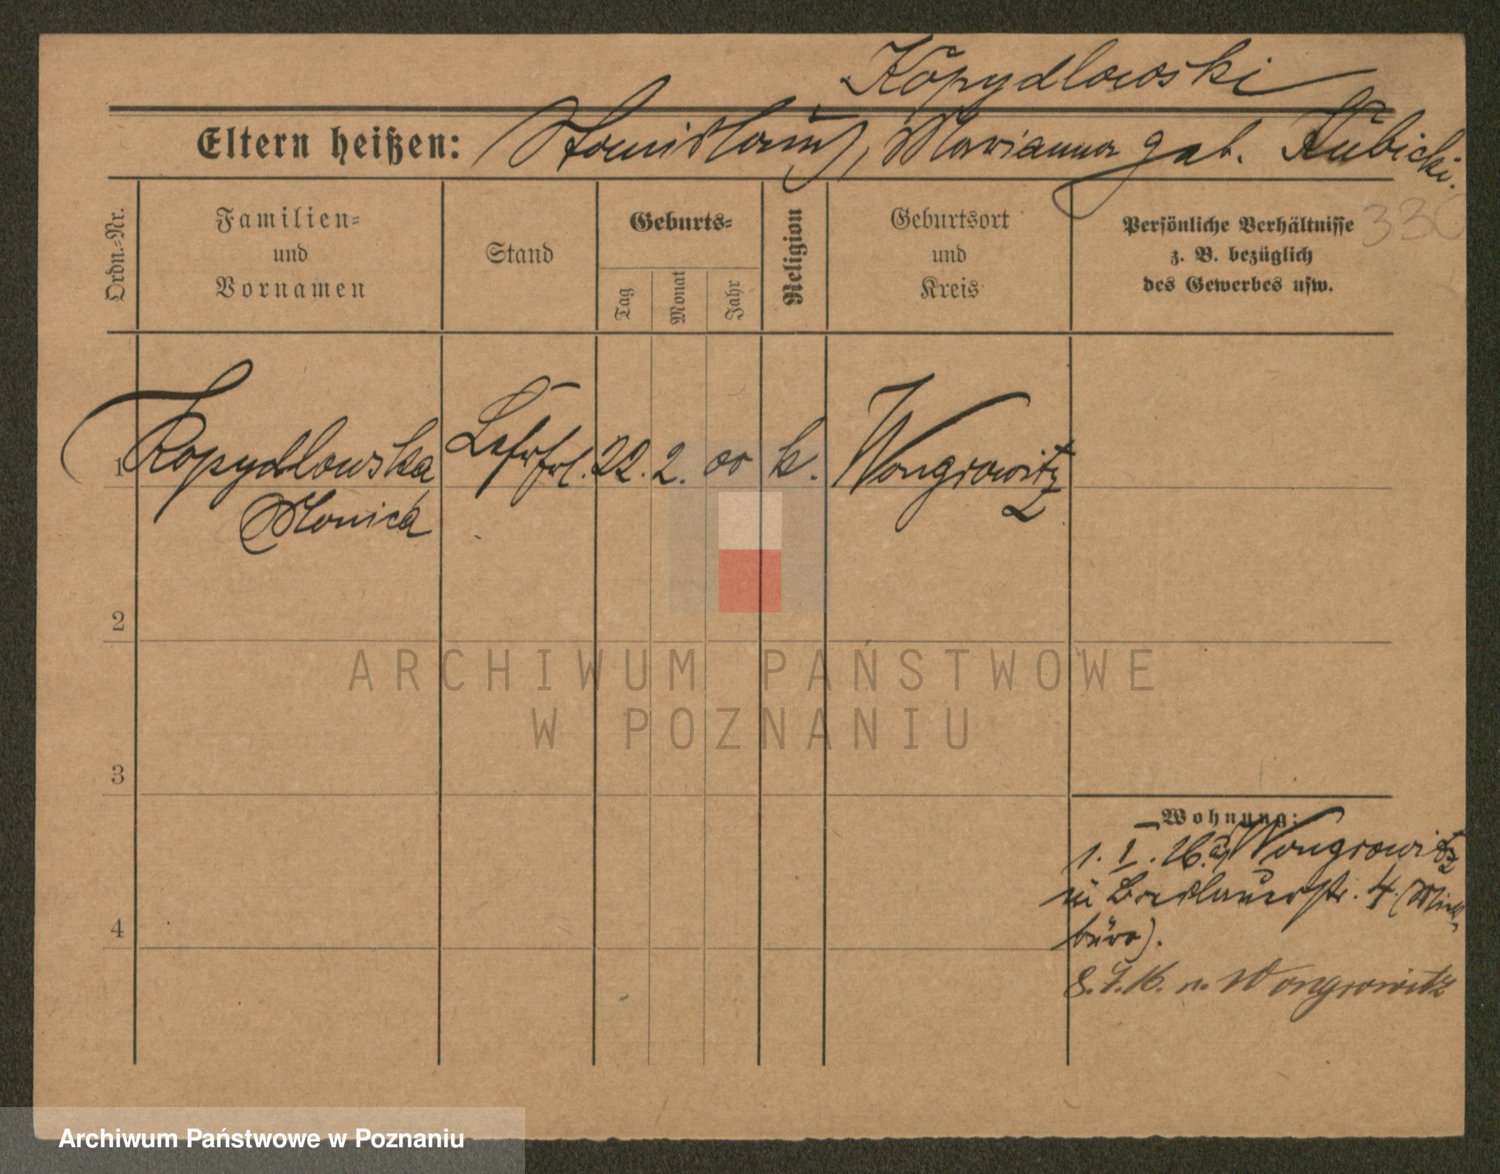 Kopydlowski
Eltern heißen: Stanislaus, Marianna geb. Kubicki.
330
Ordn.=Nr.
Familien=
und
Vornamen
Stand
Geburts=
Tag
Monat
Jahr
Religion
Geburtsort
und
Kreis
Persönliche Verhältnisse
z. B. bezüglich
des Gewerbes usw.
1 Kopydlowska Lehrfrl. 22. 2. 00 k. Wongrowitz
Monica
2
ARCHIWUM PAŃSTWOWE
W POZNANIU
3
Wohnung:
1. I. 16. Wongrowitz
Breslauerstr. 4 (
büro).
4
8. 7. 16. n. Wongrowitz
Archiwum Państwowe w Poznaniu